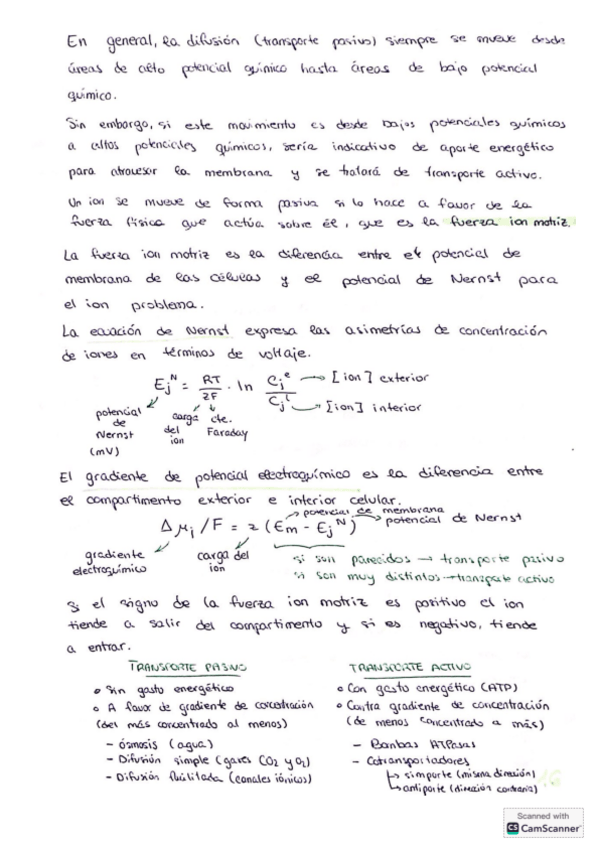 En general, la difusión (transporte pasivo) siempre se mueve desde
áreas de alto potencial químico hasta áreas de bajo potencial
químico.
Sin embargo, si este movimiento es desde bajos potenciales químicos
a altos potenciales químicos, sería indicativo de aporte energético
para atravesar la membrana y se tratará de transporte activo.
Un ion se mueve de forma pasiva si lo hace a favor de la
fuerza física que actúa sobre él, que es la fuerza ion motriz.
La fuerza ion motriz es la diferencia entre el potencial de
membrana de las células y el potencial de Nernst para
el ion problema.
La ecuación de Nernst expresa las asimetrías de concentración
de iones en términos de voltaje.
Ej^N = RT/zF · ln Cj^e/Cj^i → [ion] exterior
→ [ion] interior
potencial de Nernst (mV)
carga del ion
cte. Faraday
El gradiente de potencial electroquímico es la diferencia entre
el compartimento exterior e interior celular.
→ potencial de membrana
Δμj/F = z (Em - Ej^N) → potencial de Nernst
gradiente electroquímico
carga del ion
si son parecidos → transporte pasivo
si son muy distintos → transporte activo
Si el signo de la fuerza ion motriz es positivo el ion
tiende a salir del compartimento y si es negativo, tiende
a entrar.
TRANSPORTE PASIVO
• Sin gasto energético
• A favor de gradiente de concentración
(del más concentrado al menos)
- Ósmosis (agua)
- Difusión simple (gases CO2 y O2)
- Difusión facilitada (canales iónicos)
TRANSPORTE ACTIVO
• Con gasto energético (ATP)
• Contra gradiente de concentración
(de menos concentrado a más)
- Bombas ATPasas
- Cotransportadores
↳ simporte (misma dirección)
↳ antiporte (dirección contraria)
Scanned with
CS CamScanner